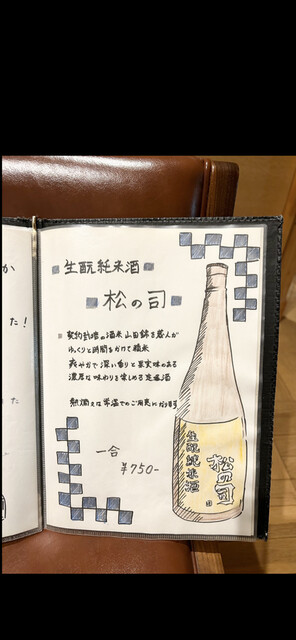 か
た!
生酛純米酒
松の司
契約栽培の酒米 山田錦を蔵人が
ゆっくりと時間をかけて精米
爽やかで深い香りと果実味のある
濃厚な味わりを楽しめる定番酒
熱燗又は常温でのご用意になります
一合
¥750-
生酛純米酒
松の司